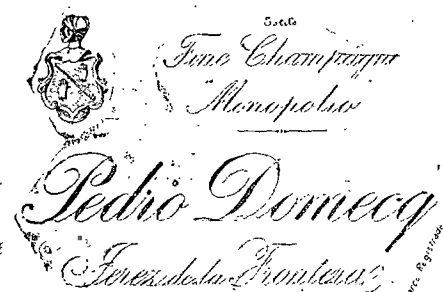 Estilo
Fine Champagne
"Monopolio
Pedro Domecq
Jerez de la Frontera
Marca Registrada